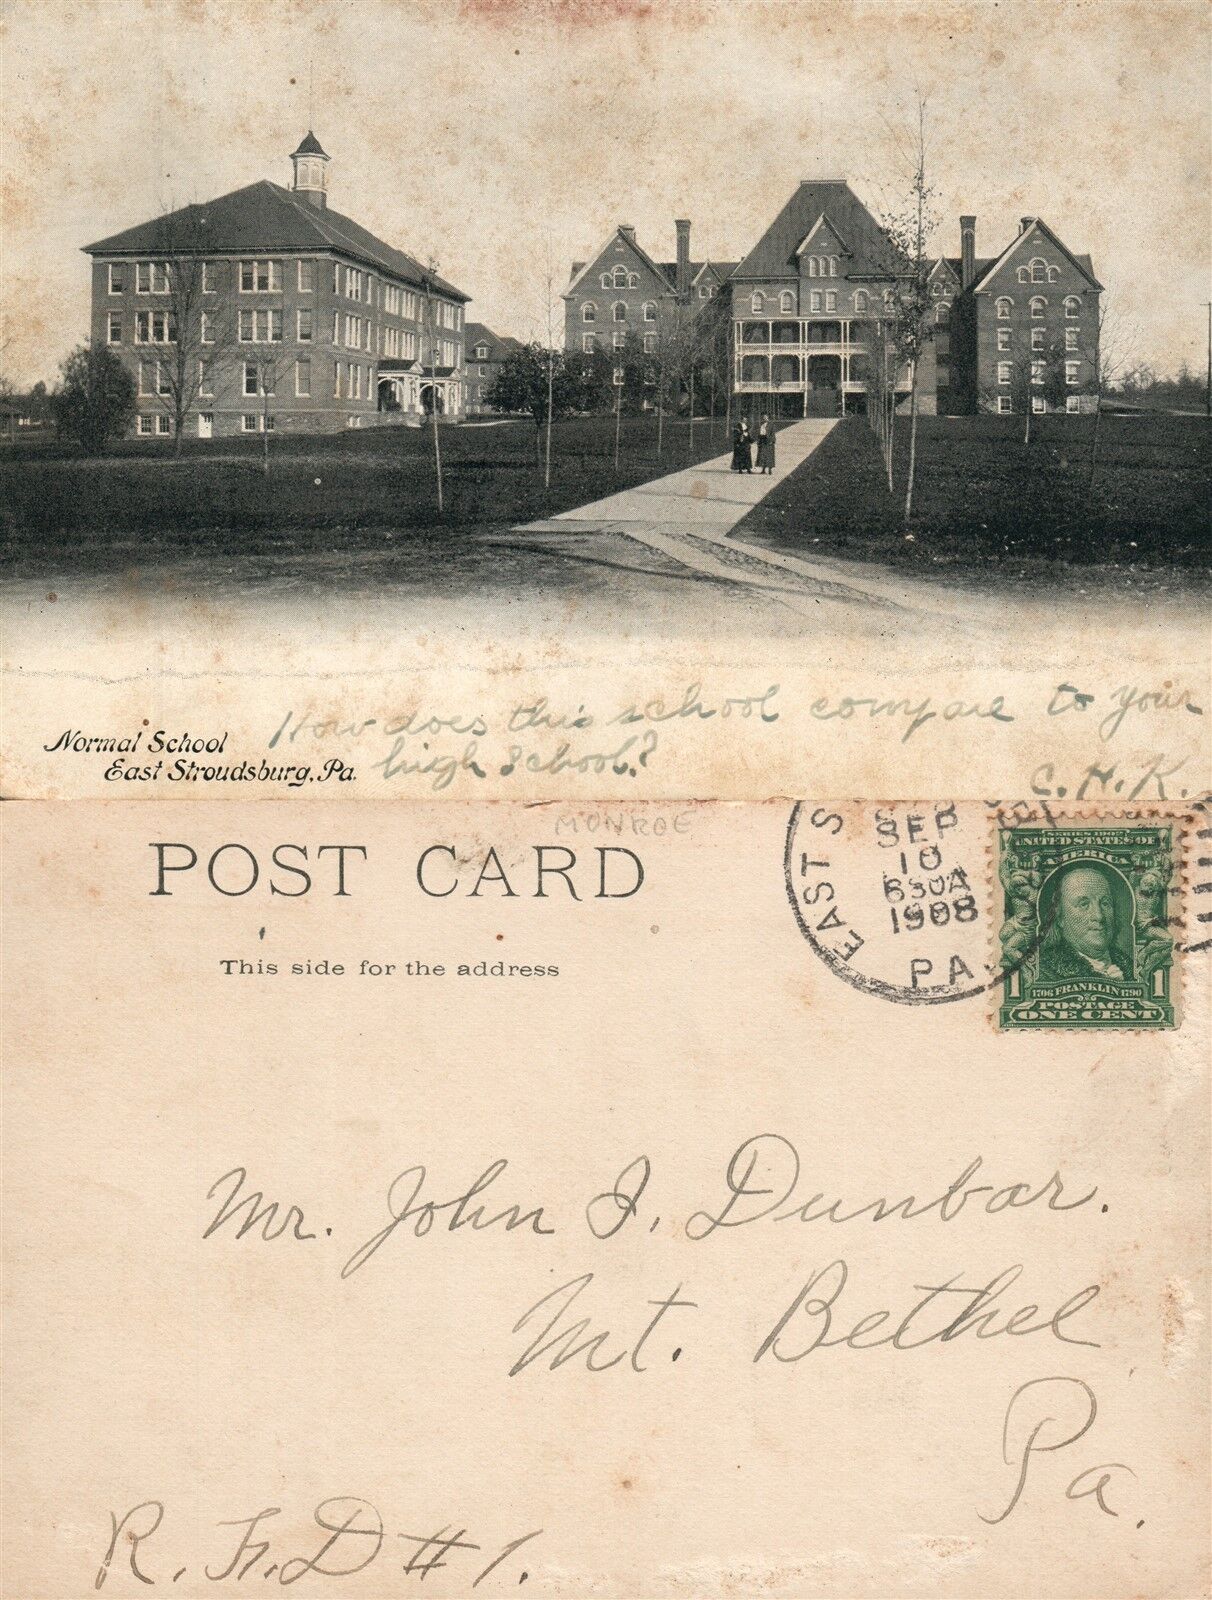 How does this school compare to your
Normal School
high school?
East Stroudsburg, Pa.
C. H. K.
MONROE
POST CARD
This side for the address
EAST S
SEP
10
630A
1908
PA.
SERIES 1902
UNITED STATES OF
AMERICA
1 1706 FRANKLIN 1790 1
POSTAGE
ONE CENT
Mr. John I. Dunbar.
Mt. Bethel
Pa.
R. F. D #1.